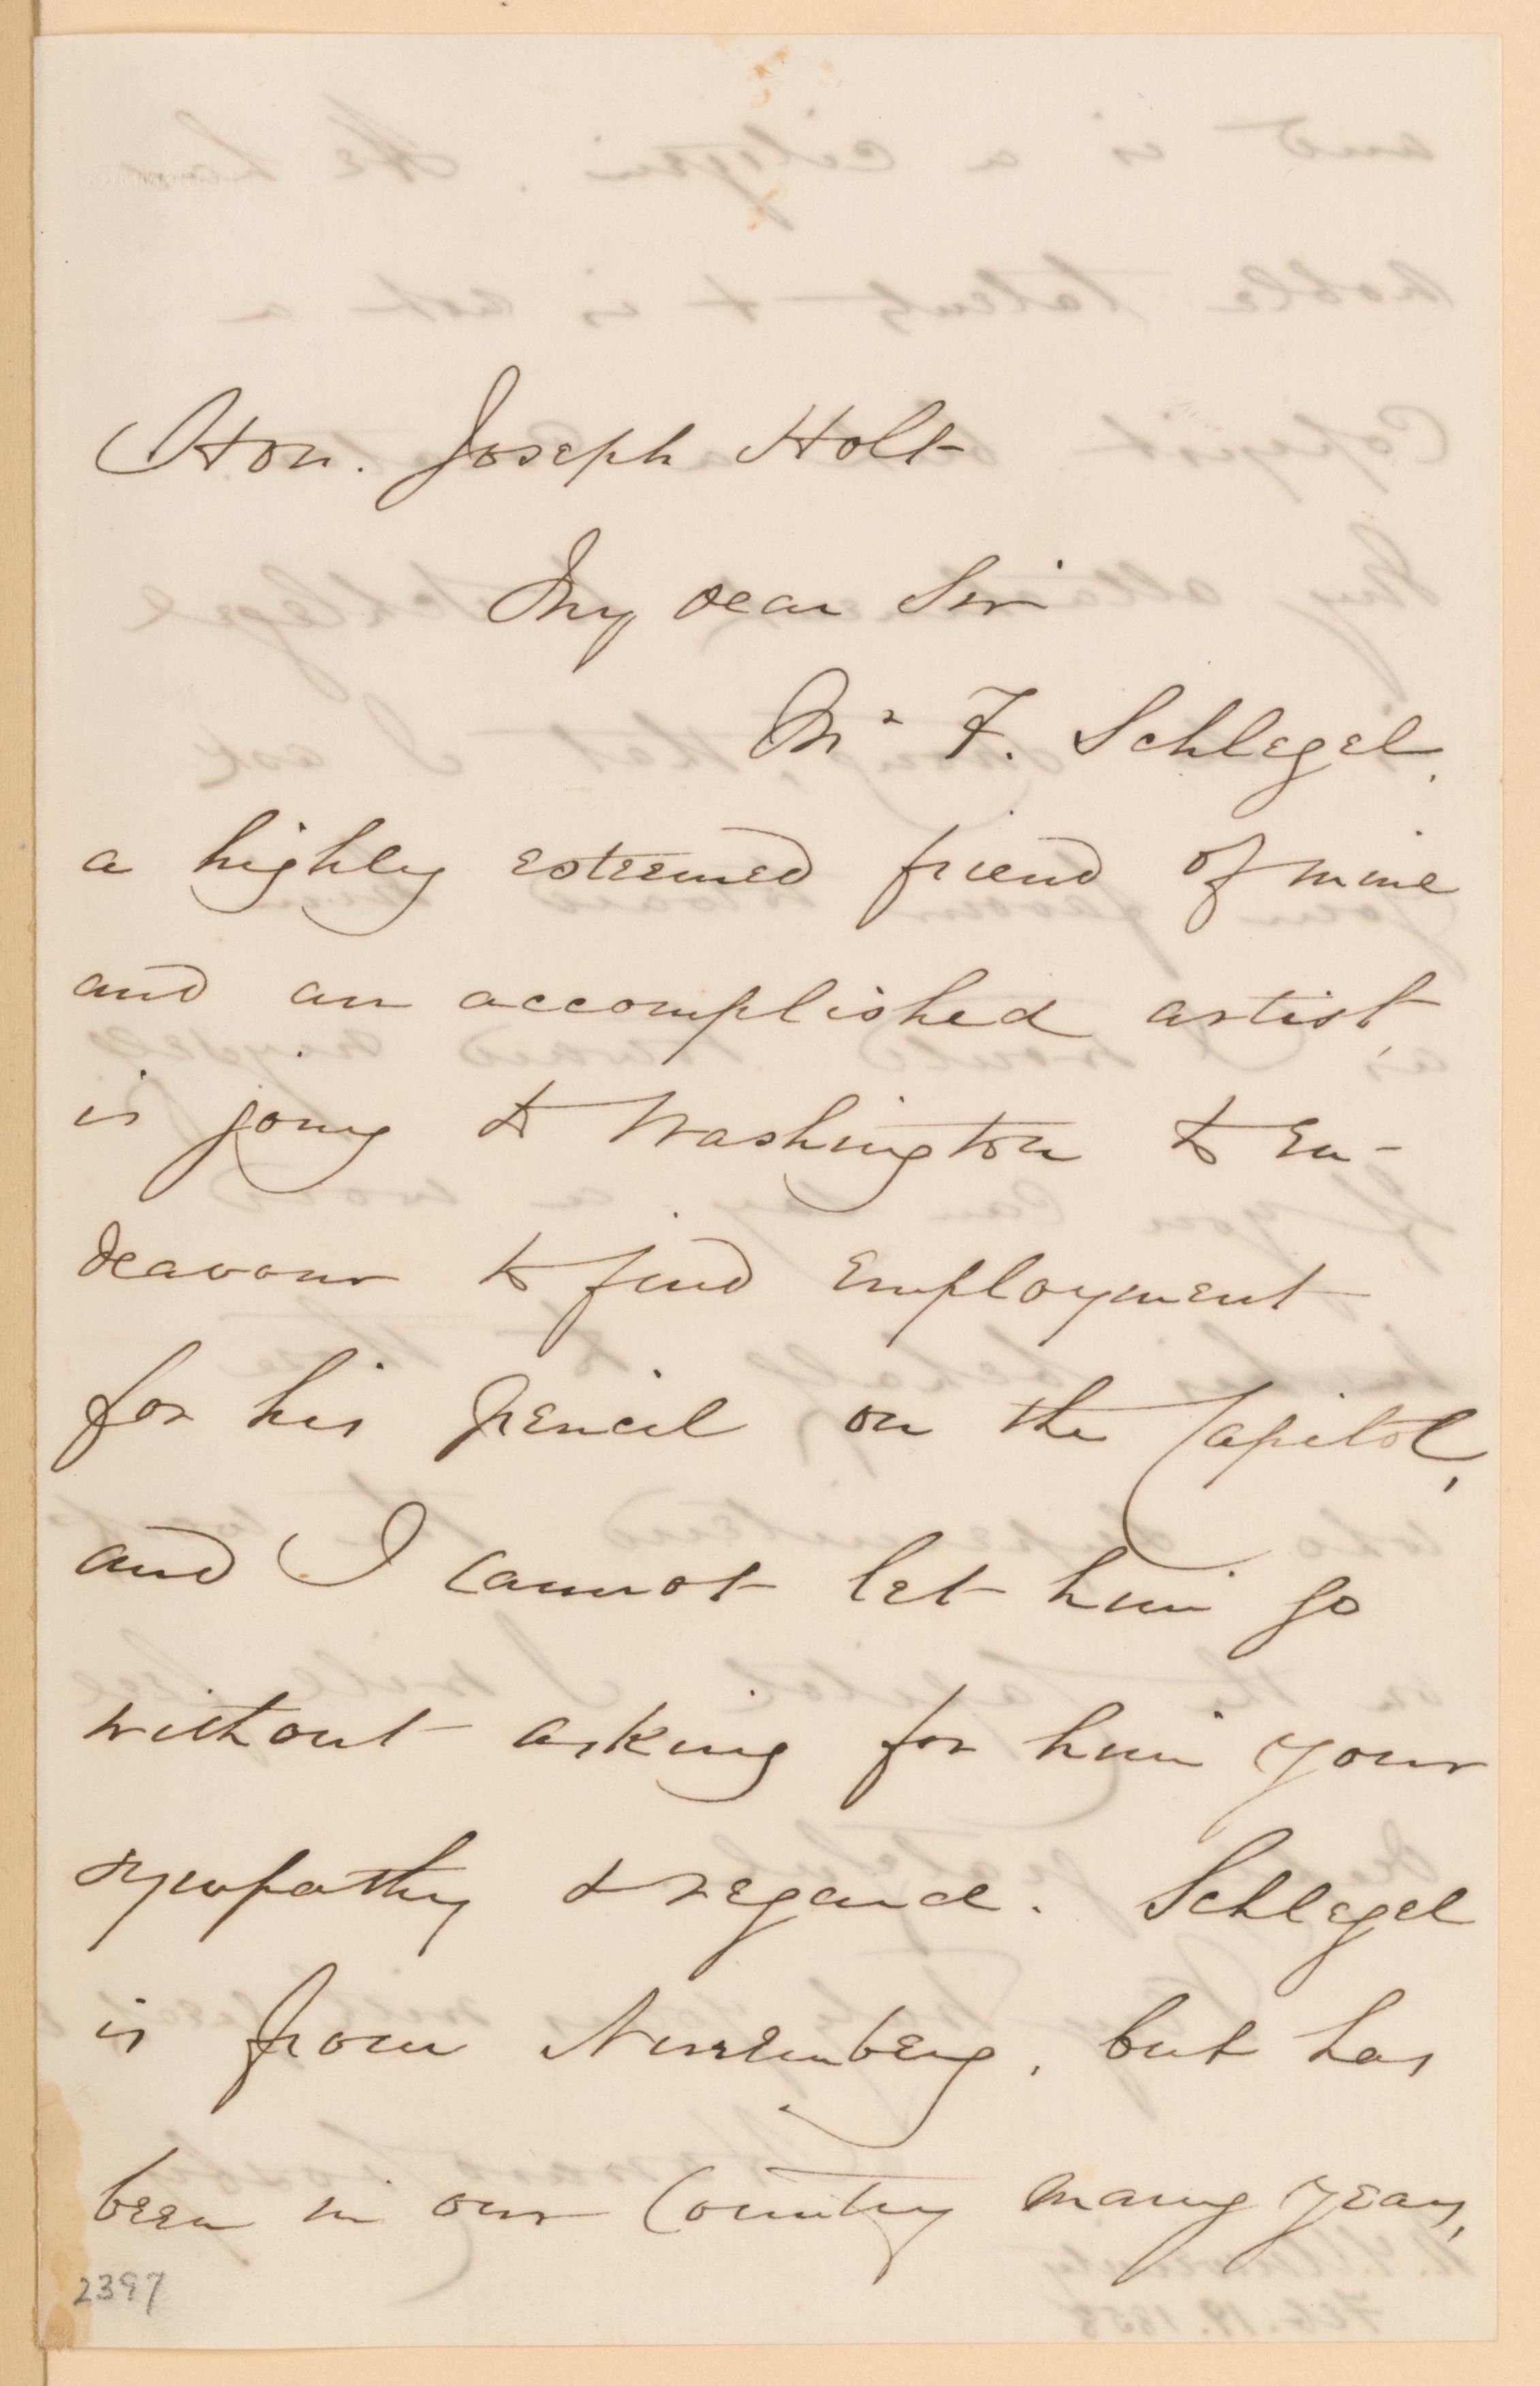 Hon. Joseph Holt
My dear Sir
Mr F. Schlegel,
a highly esteemed friend of mine
and an accomplished artist,
is going to Washington to en-
deavour to find employment
for his pencil on the Capitol,
and I cannot let him go
without asking for him your
sympathy & regard. Schlegel
is from Nuremberg, but has
been in our Country many years,
2397